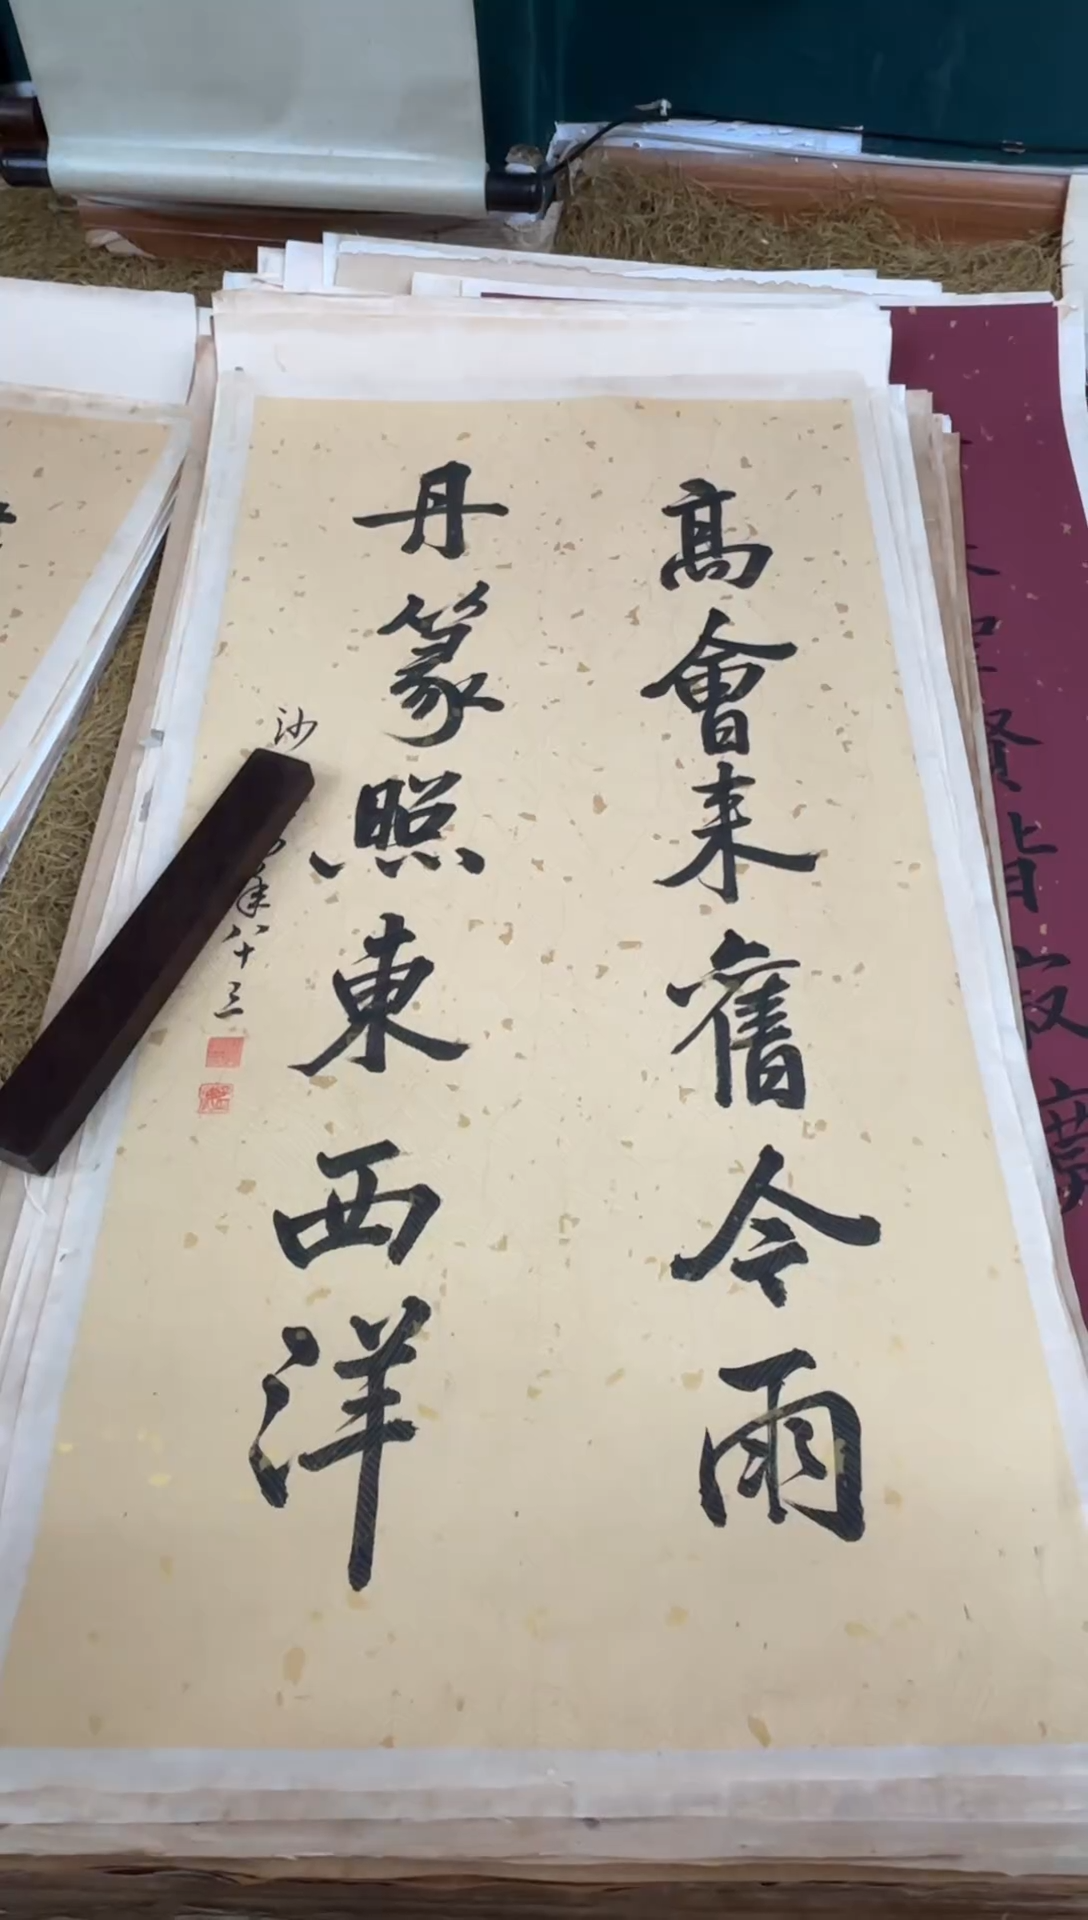 高會来舊令雨
丹篆照東西洋
沙
年八十三
聖賢皆寂